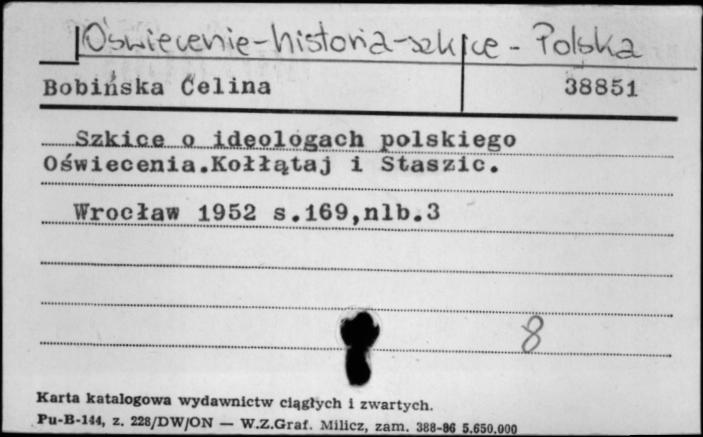 Oświecenie-historia-szkice - Polska
Bobińska Celina 38851
Szkice o ideologach polskiego
Oświecenia.Kołłątaj i Staszic.
Wrocław 1952 s.169,nlb.3
8
Karta katalogowa wydawnictw ciągłych i zwartych.
Pu-B-144, z. 228/DW/ON — W.Z.Graf. Milicz, zam. 388-86 5.650.000